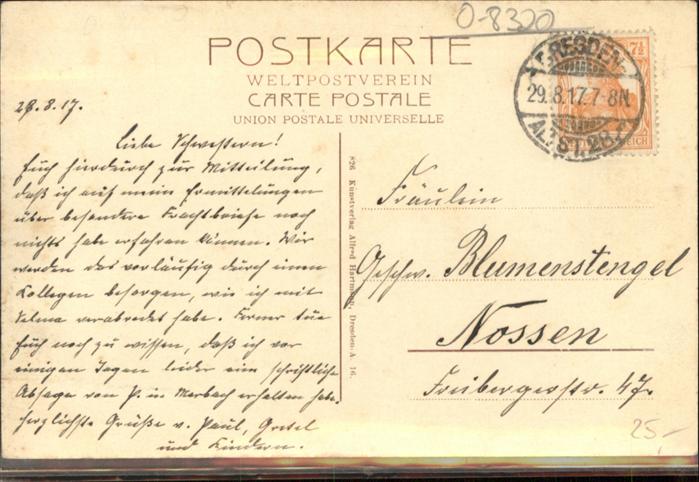 0-8300
POSTKARTE
WELTPOSTVEREIN
CARTE POSTALE
UNION POSTALE UNIVERSELLE
7½
DRESDEN-
29.8.17.7-8N.
ALTST. 28
REICH
28.8.17.
Liebe Schwestern!
Euch hierdurch zur Mitteilung,
daß ich auf meine Ermittelungen
über besondere Frachtbriefe noch
nichts habe erfahren können. Wir
werden das vorläufig durch einen
Kollegen besorgen, wie ich mit
Selma verabredet habe. Ferner tue
Euch noch zu wissen, daß ich vor
einigen Tagen leider eine schriftliche
Absage von P. in Marbach erhalten habe.
herzlichste Grüße v. Paul, Gretel
und Kindern.
826 Künstverlag Alfred Hartmann, Dresden-A. 16.
Fräulein
Geschw. Blumenstengel
Nossen
Freibergerstr. 47.
25,-